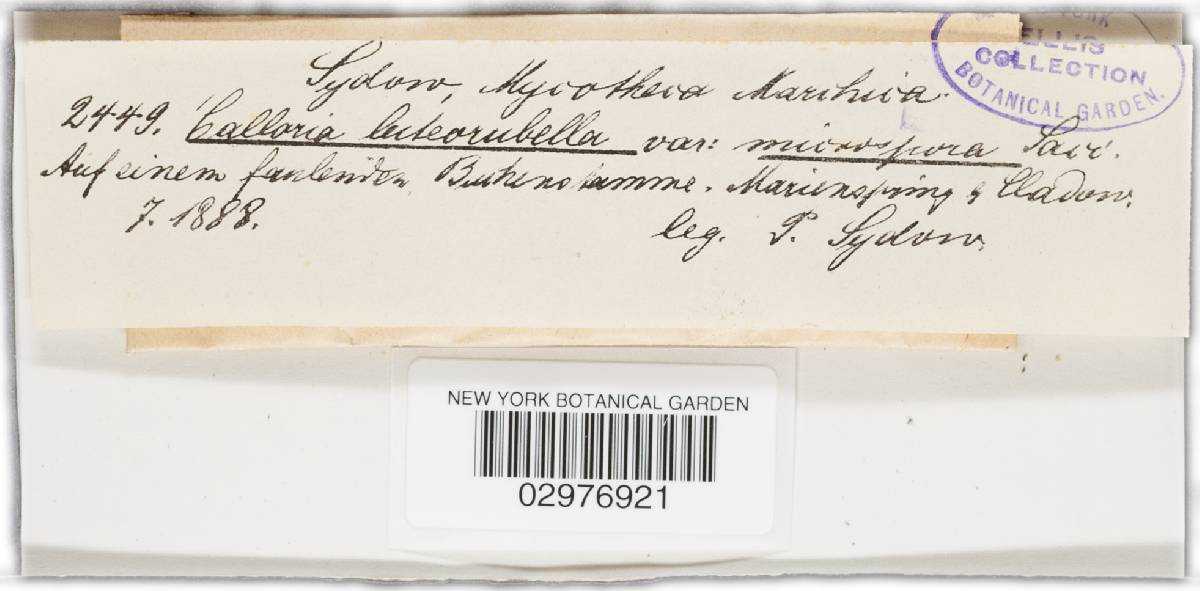 Sydow, Mycotheca Marchica.
2449. Calloria luteorubella var: microspora Sacc.
Auf einem faulenden Buchenstamme. Marienspring b Cladow.
7. 1888. leg. P. Sydow.
YORK
ELLIS
COLLECTION
BOTANICAL GARDEN.
NEW YORK BOTANICAL GARDEN
02976921